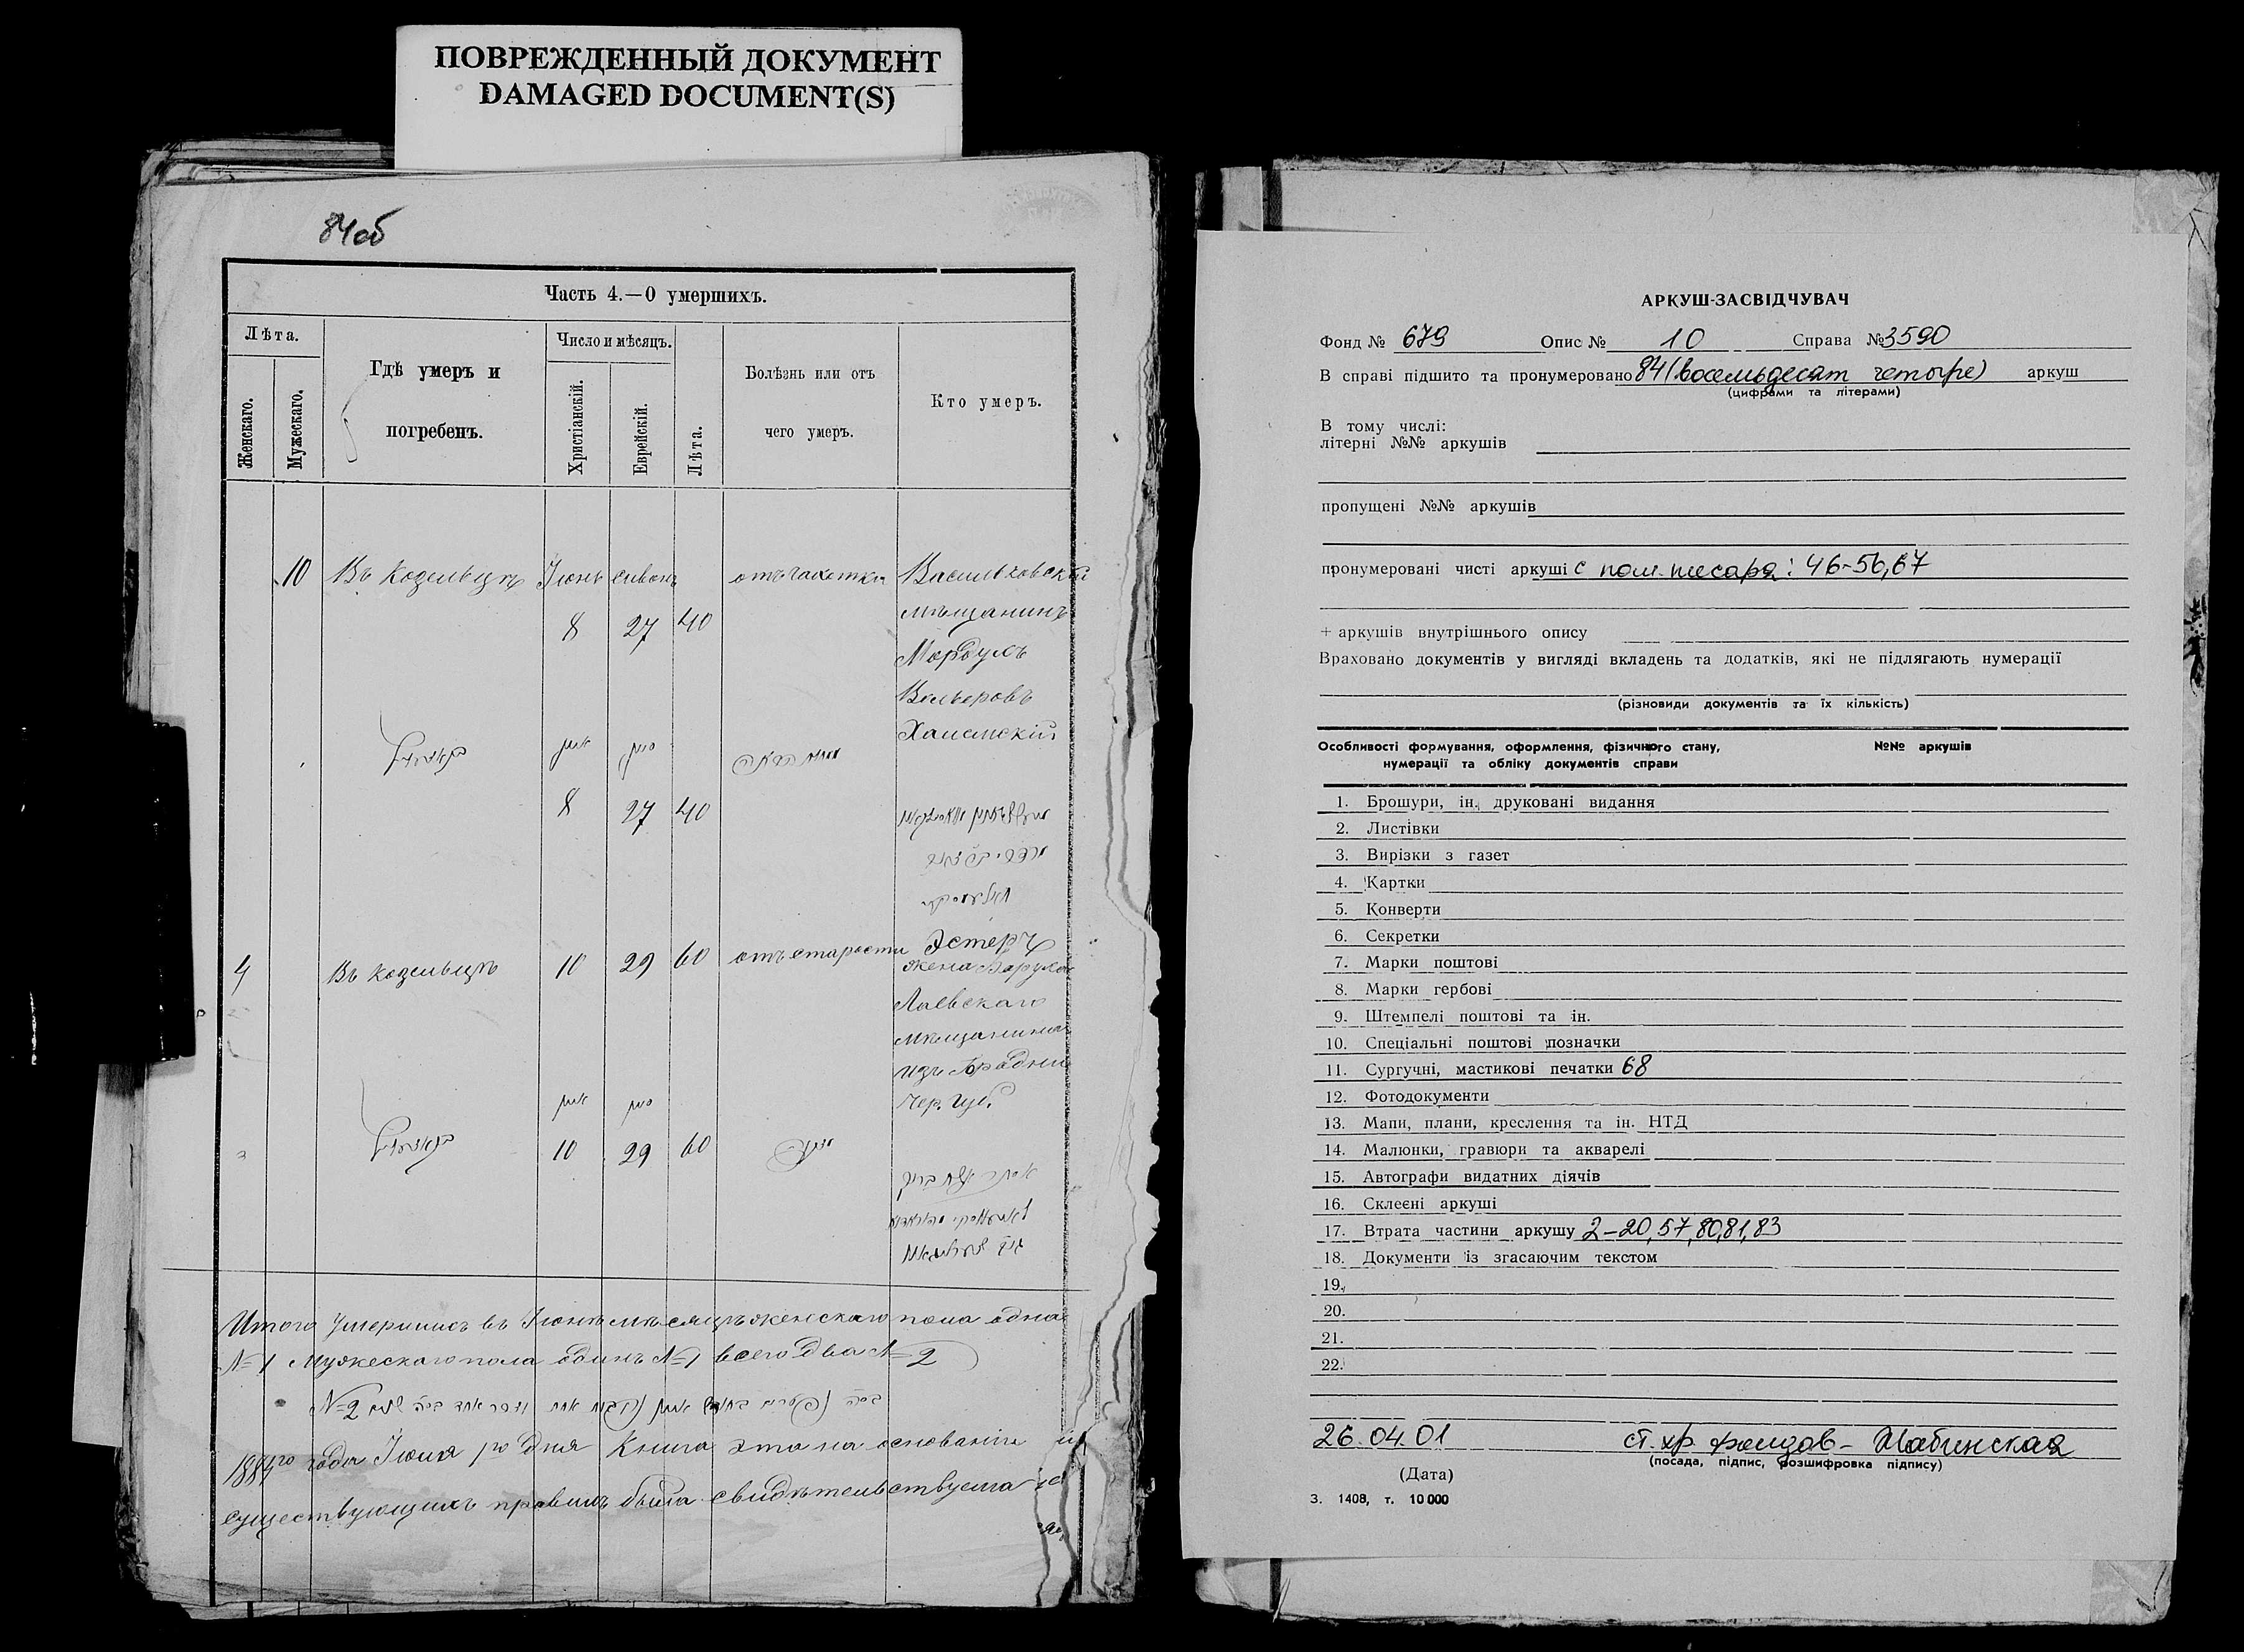 ПОВРЕЖДЕННЫЙ ДОКУМЕНТ
DAMAGED DOCUMENT(S)
84об
Часть 4.—О умершихъ.
Лѣта.
Женскаго.
Мужескаго.
Гдѣ умеръ и
погребенъ.
Число и мѣсяцъ.
Христіанскій.
Еврейскій.
Лѣта.
Болѣзнь или отъ
чего умеръ.
Кто умеръ.
10 Въ Козельцѣ Іюнь сивонъ отъ чахотки Васильковскій
8 27 40 мѣщанинъ
Мордухъ
Вольеровъ
8 27 40
4 Въ Козельцѣ 10 29 60 отъ старости Эстеръ
жена Баруха
Лаевскаго
мѣщанина
изъ
Чер. губ.
10 29 60
Итого умершихъ въ Іюнѣ мѣсяцѣ женскаго пола одна
№ 1 Мужескаго пола одинъ № 1 всего два № 2
№ 2
1884го года Іюля дня Книга эта на основаніи
существующихъ правилъ была свидѣтельствуема
АРКУШ-ЗАСВІДЧУВАЧ
Фонд № 679 Опис № 10 Справа № 3590
В справі підшито та пронумеровано 84 (восемьдесят четыре) аркуш
(цифрами та літерами)
В тому числі:
літерні №№ аркушів
пропущені №№ аркушів
пронумеровані чисті аркуші с 46-56, 67
+ аркушів внутрішнього опису
Враховано документів у вигляді вкладень та додатків, які не підлягають нумерації
(різновиди документів та їх кількість)
Особливості формування, оформлення, фізичного стану, №№ аркушів
нумерації та обліку документів справи
1. Брошури, ін. друковані видання
2. Листівки
3. Вирізки з газет
4. Картки
5. Конверти
6. Секретки
7. Марки поштові
8. Марки гербові
9. Штемпелі поштові та ін.
10. Спеціальні поштові позначки
11. Сургучні, мастикові печатки 68
12. Фотодокументи
13. Мапи, плани, креслення та ін. НТД
14. Малюнки, гравюри та акварелі
15. Автографи видатних діячів
16. Склеєні аркуші
17. Втрата частини аркушу 2-20, 57, 80, 81, 83
18. Документи із згасаючим текстом
19.
20.
21.
22.
26.04.01 ст. хр. фондов - Шабинская
(посада, підпис, розшифровка підпису)
(Дата)
З. 1408, т. 10 000